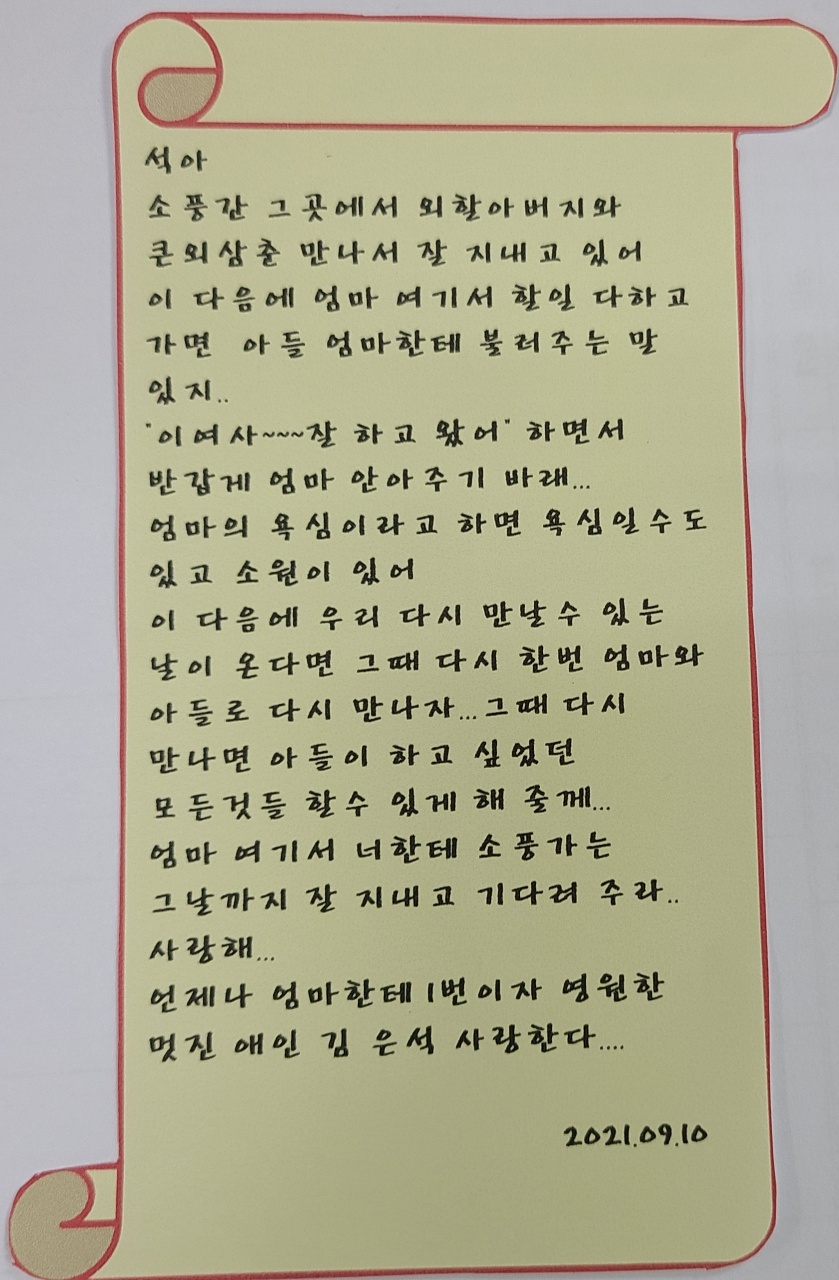 석아
소풍간 그곳에서 외할아버지와
큰외삼춘 만나서 잘 지내고 있어
이 다음에 엄마 여기서 할일 다하고
가면 아들 엄마한테 불러주는 말
있지..
"이여사~~~잘 하고 왔어" 하면서
반갑게 엄마 안아주기 바래...
엄마의 욕심이라고 하면 욕심일수도
있고 소원이 있어
이 다음에 우리 다시 만날수 있는
날이 온다면 그때 다시 한번 엄마와
아들로 다시 만나자...그때 다시
만나면 아들이 하고 싶었던
모든것들 할수 있게 해 줄께...
엄마 여기서 너한테 소풍가는
그날까지 잘 지내고 기다려 주라..
사랑해...
언제나 엄마한테 1번이자 영원한
멋진 애인 김 은석 사랑한다....
2021.09.10